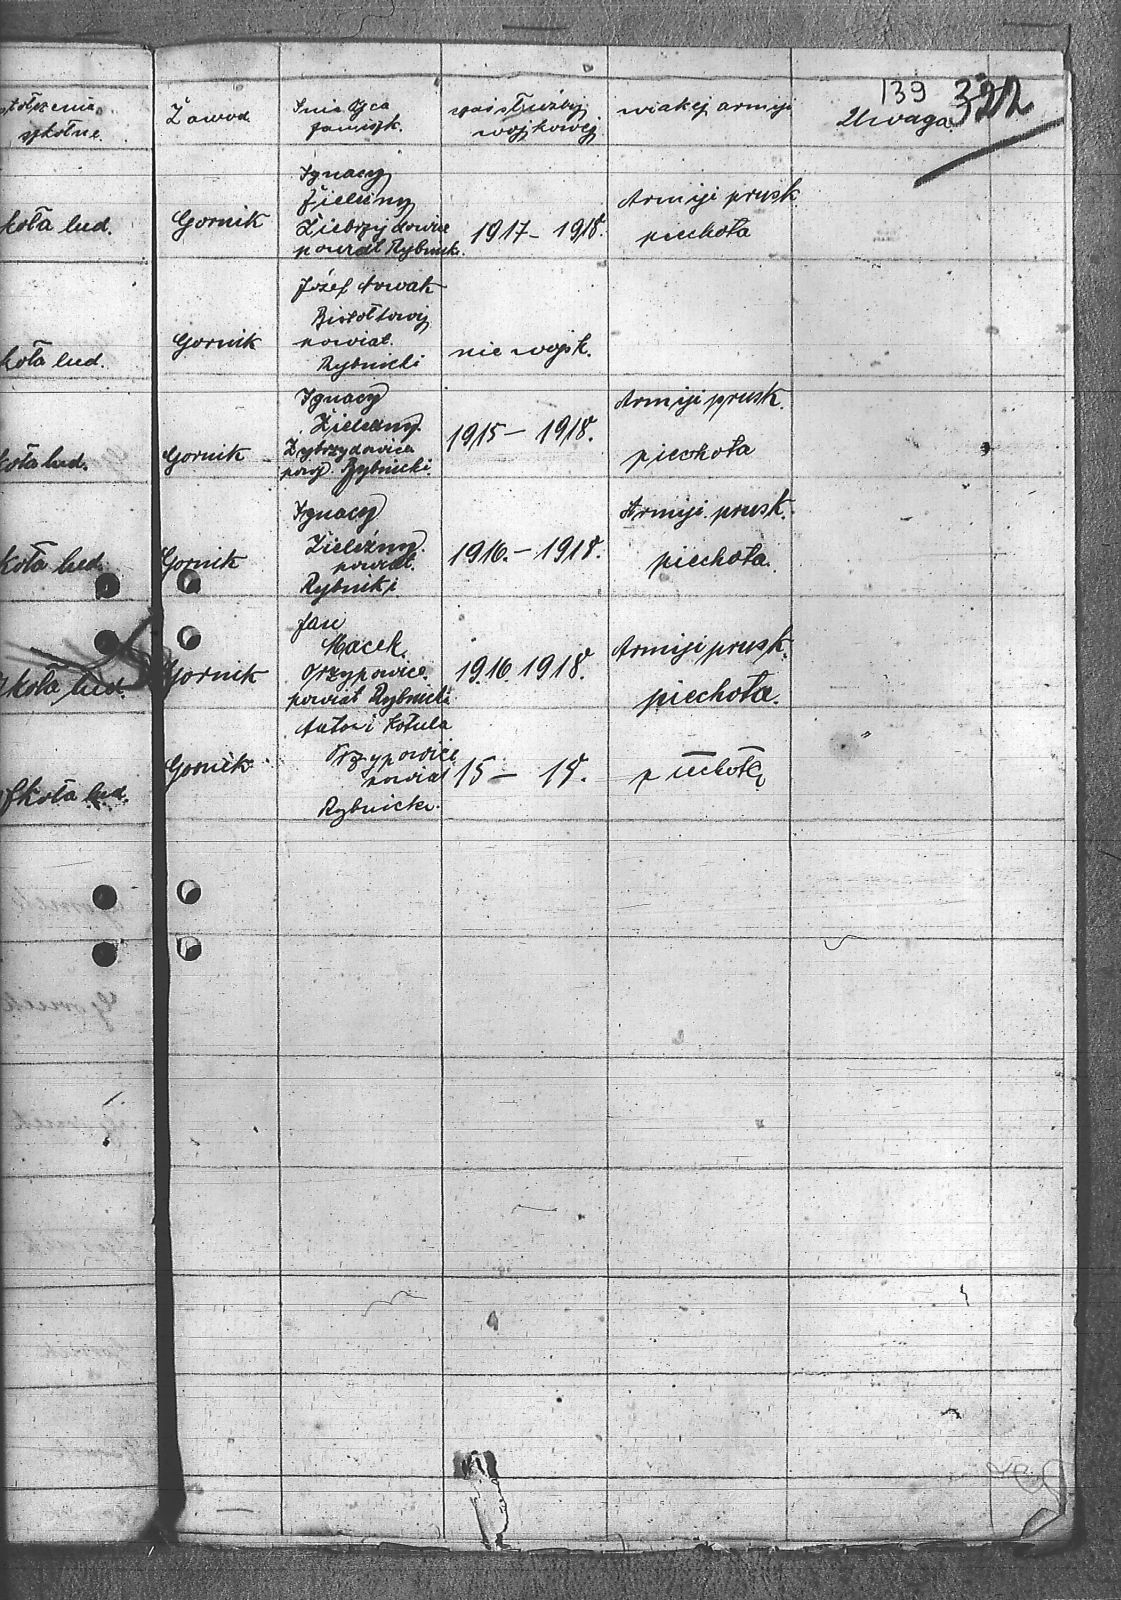 139 322
szkolne
Zawod
Imie Ojca
zamiszk.
służby
wojskowej
wiakej armiji
Uwaga
koła lud.
Gornik
Ignacy
Zielezny
powiat Rybnick.
1917 - 1918.
Armiji prusk.
piechota
koła lud.
Gornik
Józef Nowak
powiat.
Rybnicki
nie wojsk.
koła lud.
Gornik
Ignacy
Zielezny
pow. Rybnicki.
1915 - 1918.
Armiji prusk.
piechota
koła lud.
Gornik
Ignacy
Zielezny.
powiat.
Rybniki
1916. - 1918.
Armiji prusk.
piechota.
Skoła lud.
Gornik
Jan
Macek.
Orzypowice.
powiat Rybnicki
1916 1918.
Armiji prusk.
piechota.
Skoła lud.
Gornik
Antoni Kotula
Orzypowice
powiat
Rybnicki.
15 - 18.
piechota